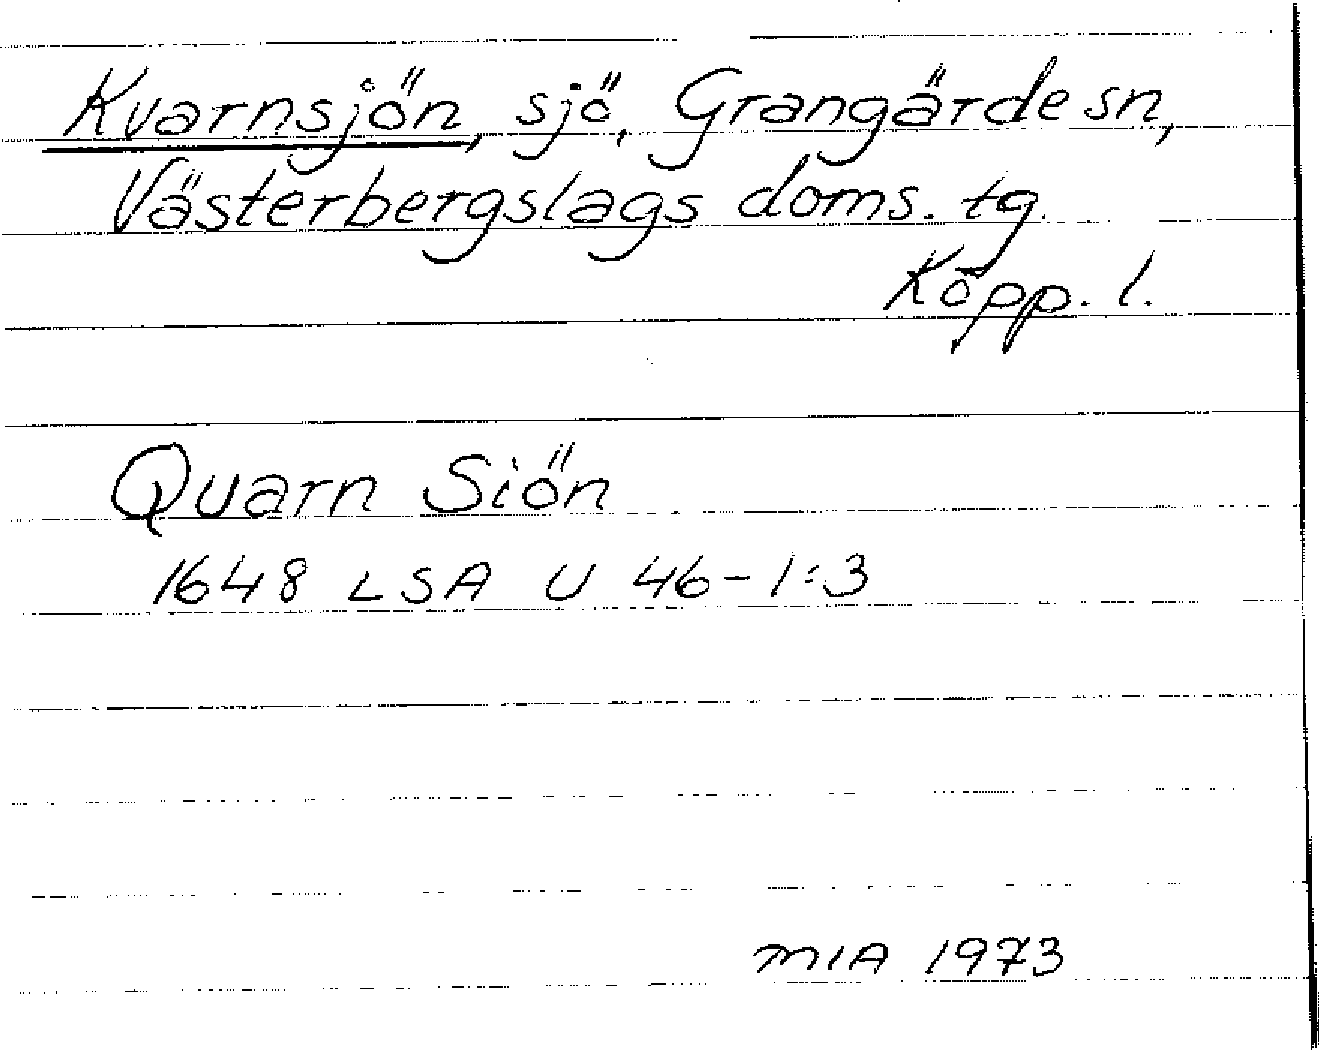 Kvarnsjön, sjö, Grangärde sn,
Västerbergslags doms. tg.
Kopp. l.
Quarn Siön
1648 LSA U 46-1:3
MIA 1973